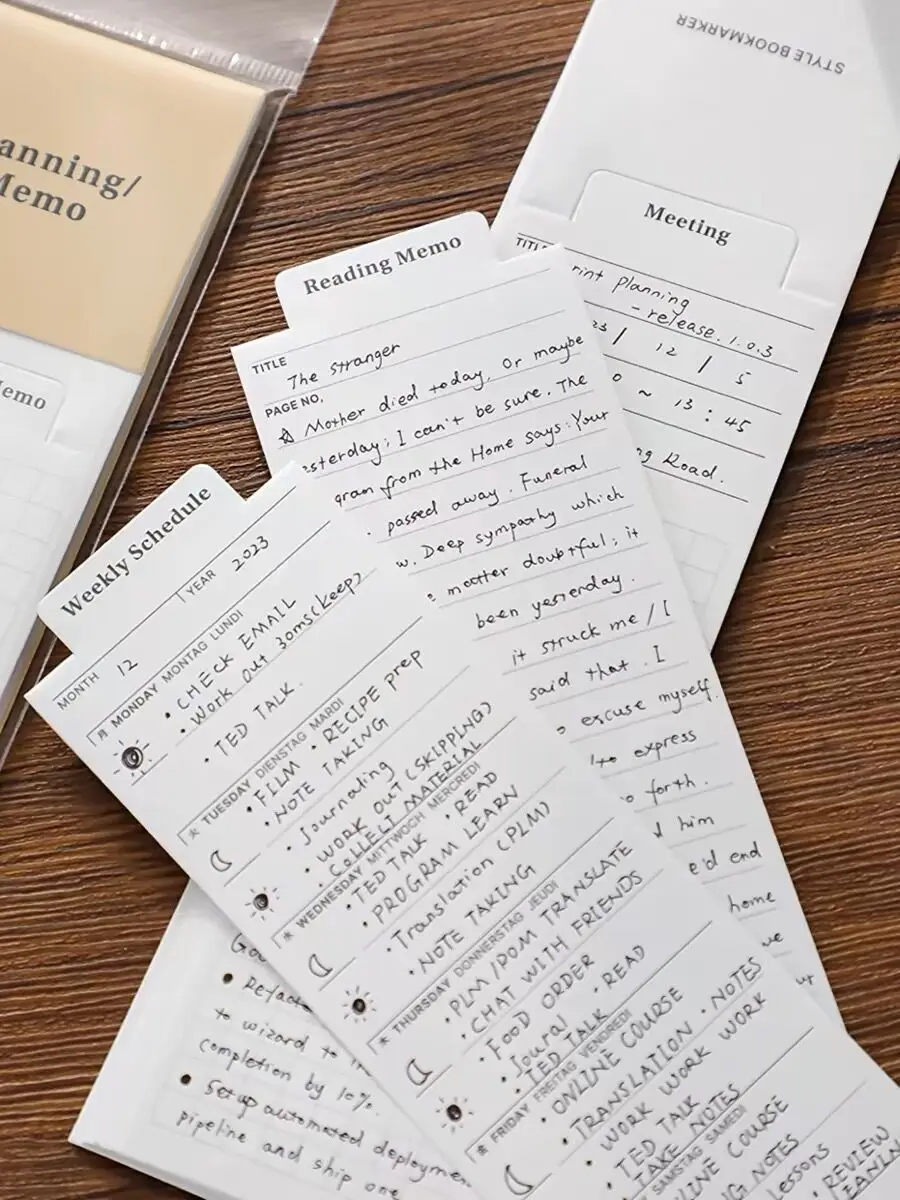 anning/
Memo
Memo
STYLE BOOKMARKER
Meeting
TITLE
rint planning
- release. 1.0.3
23 / 12 / 5
0 ~ 13:45
ng Road.
Reading Memo
TITLE The stranger
PAGE NO.
☆ Mother died today. Or maybe
esterday; I can't be sure. The
gram from the Home says: Your
passed away. Funeral
w. Deep sympathy which
matter doubtful; it
been yesterday.
it struck me / I
said that. I
excuse myself.
to express
so forth.
d him
e'd end
home
Weekly Schedule
MONTH 12 YEAR 2023
月 MONDAY MONTAG LUNDI
• CHECK EMAIL
• Work out 30ms(keep)
• TED TALK.
火 TUESDAY DIENSTAG MARDI
• FILM • RECIPE prep
• NOTE TAKING
• Journaling
• WORK OUT (SKIPPING)
• COLLECT MATERIAL
水 WEDNESDAY MITTWOCH MERCREDI
• TED TALK • READ
• PROGRAM LEARN
• Translation (PLM)
• NOTE TAKING
木 THURSDAY DONNERSTAG JEUDI
• PLM/POM TRANSLATE
• CHAT WITH FRIENDS
• FOOD ORDER
• Journal • READ
• TED TALK
金 FRIDAY FREITAG VENDREDI
• ONLINE COURSE
• TRANSLATION • NOTES
• WORK WORK WORK
• TED TALK
TAKE NOTES
SAMSTAG SAMEDI
LINE COURSE
NG NOTES
lessons
REVIEW
Goa
• Refacto
to wizard to
completion by 10%.
• Setup automated deploymen
pipeline and ship one